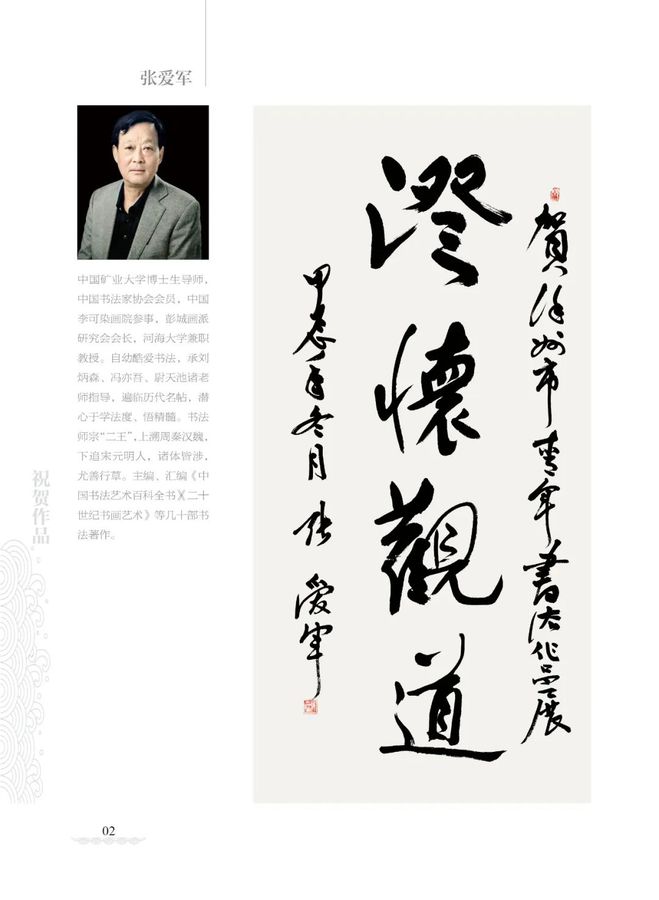 张爱军
中国矿业大学博士生导师，
中国书法家协会会员，中国
李可染画院参事，彭城画派
研究会会长，河海大学兼职
教授。自幼酷爱书法，承刘
炳森、冯亦吾、尉天池诸老
师指导，遍临历代名帖，潜
心于学法度、悟精髓。书法
师宗“二王”，上溯周秦汉魏，
下追宋元明人，诸体皆涉，
尤善行草。主编、汇编《中
国书法艺术百科全书》《二十
世纪书画艺术》等几十部书
法著作。
祝贺作品
賀徐州市青年書法作品展
澄懷觀道
甲辰年冬月 張愛軍
02